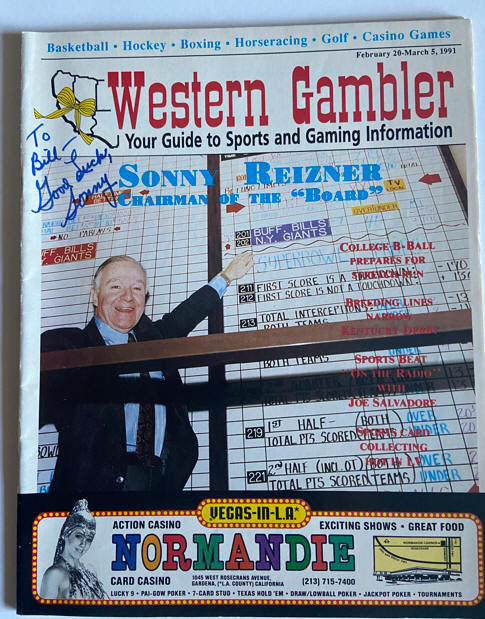 Basketball • Hockey • Boxing • Horseracing • Golf • Casino Games
February 20-March 5, 1991
Western Gambler
Your Guide to Sports and Gaming Information
To
Bill-
Good luck,
Sonny
SONNY REIZNER
CHAIRMAN OF THE "BOARD"
TV
LOCAL
OVER/UNDER
NO PARLAYS
201 BUFF. BILLS
202 N.Y. GIANTS
SUPERBOWL
Y. GIANTS
COLLEGE B-BALL
PREPARES FOR
STRETCH RUN
211 FIRST SCORE IS A TOUCHDOWN:
212 FIRST SCORE IS NOT A TOUCHDOWN:
BREEDING LINES
NARROW
KENTUCKY DERBY
213 TOTAL INTERCEPTIONS
BOTH TEAMS
SPORTS BEAT
"ON THE RADIO"
WITH
JOE SALVADORE
BOTH TEAMS
219 1ST HALF- (BOTH) OVER
TOTAL PTS SCORED UNDER
SPORTS CARD
COLLECTING
221 2ND HALF (INCL OT) (BOTH) OVER
TOTAL PTS SCORED TEAMS) UNDER
VEGAS-IN-L.A.*
ACTION CASINO
EXCITING SHOWS • GREAT FOOD
NORMANDIE
CARD CASINO
1045 WEST ROSECRANS AVENUE,
GARDENA, (*L.A. COUNTY) CALIFORNIA
(213) 715-7400
LUCKY 9 • PAI-GOW POKER • 7-CARD STUD • TEXAS HOLD 'EM • DRAW/LOWBALL POKER • JACKPOT POKER • TOURNAMENTS